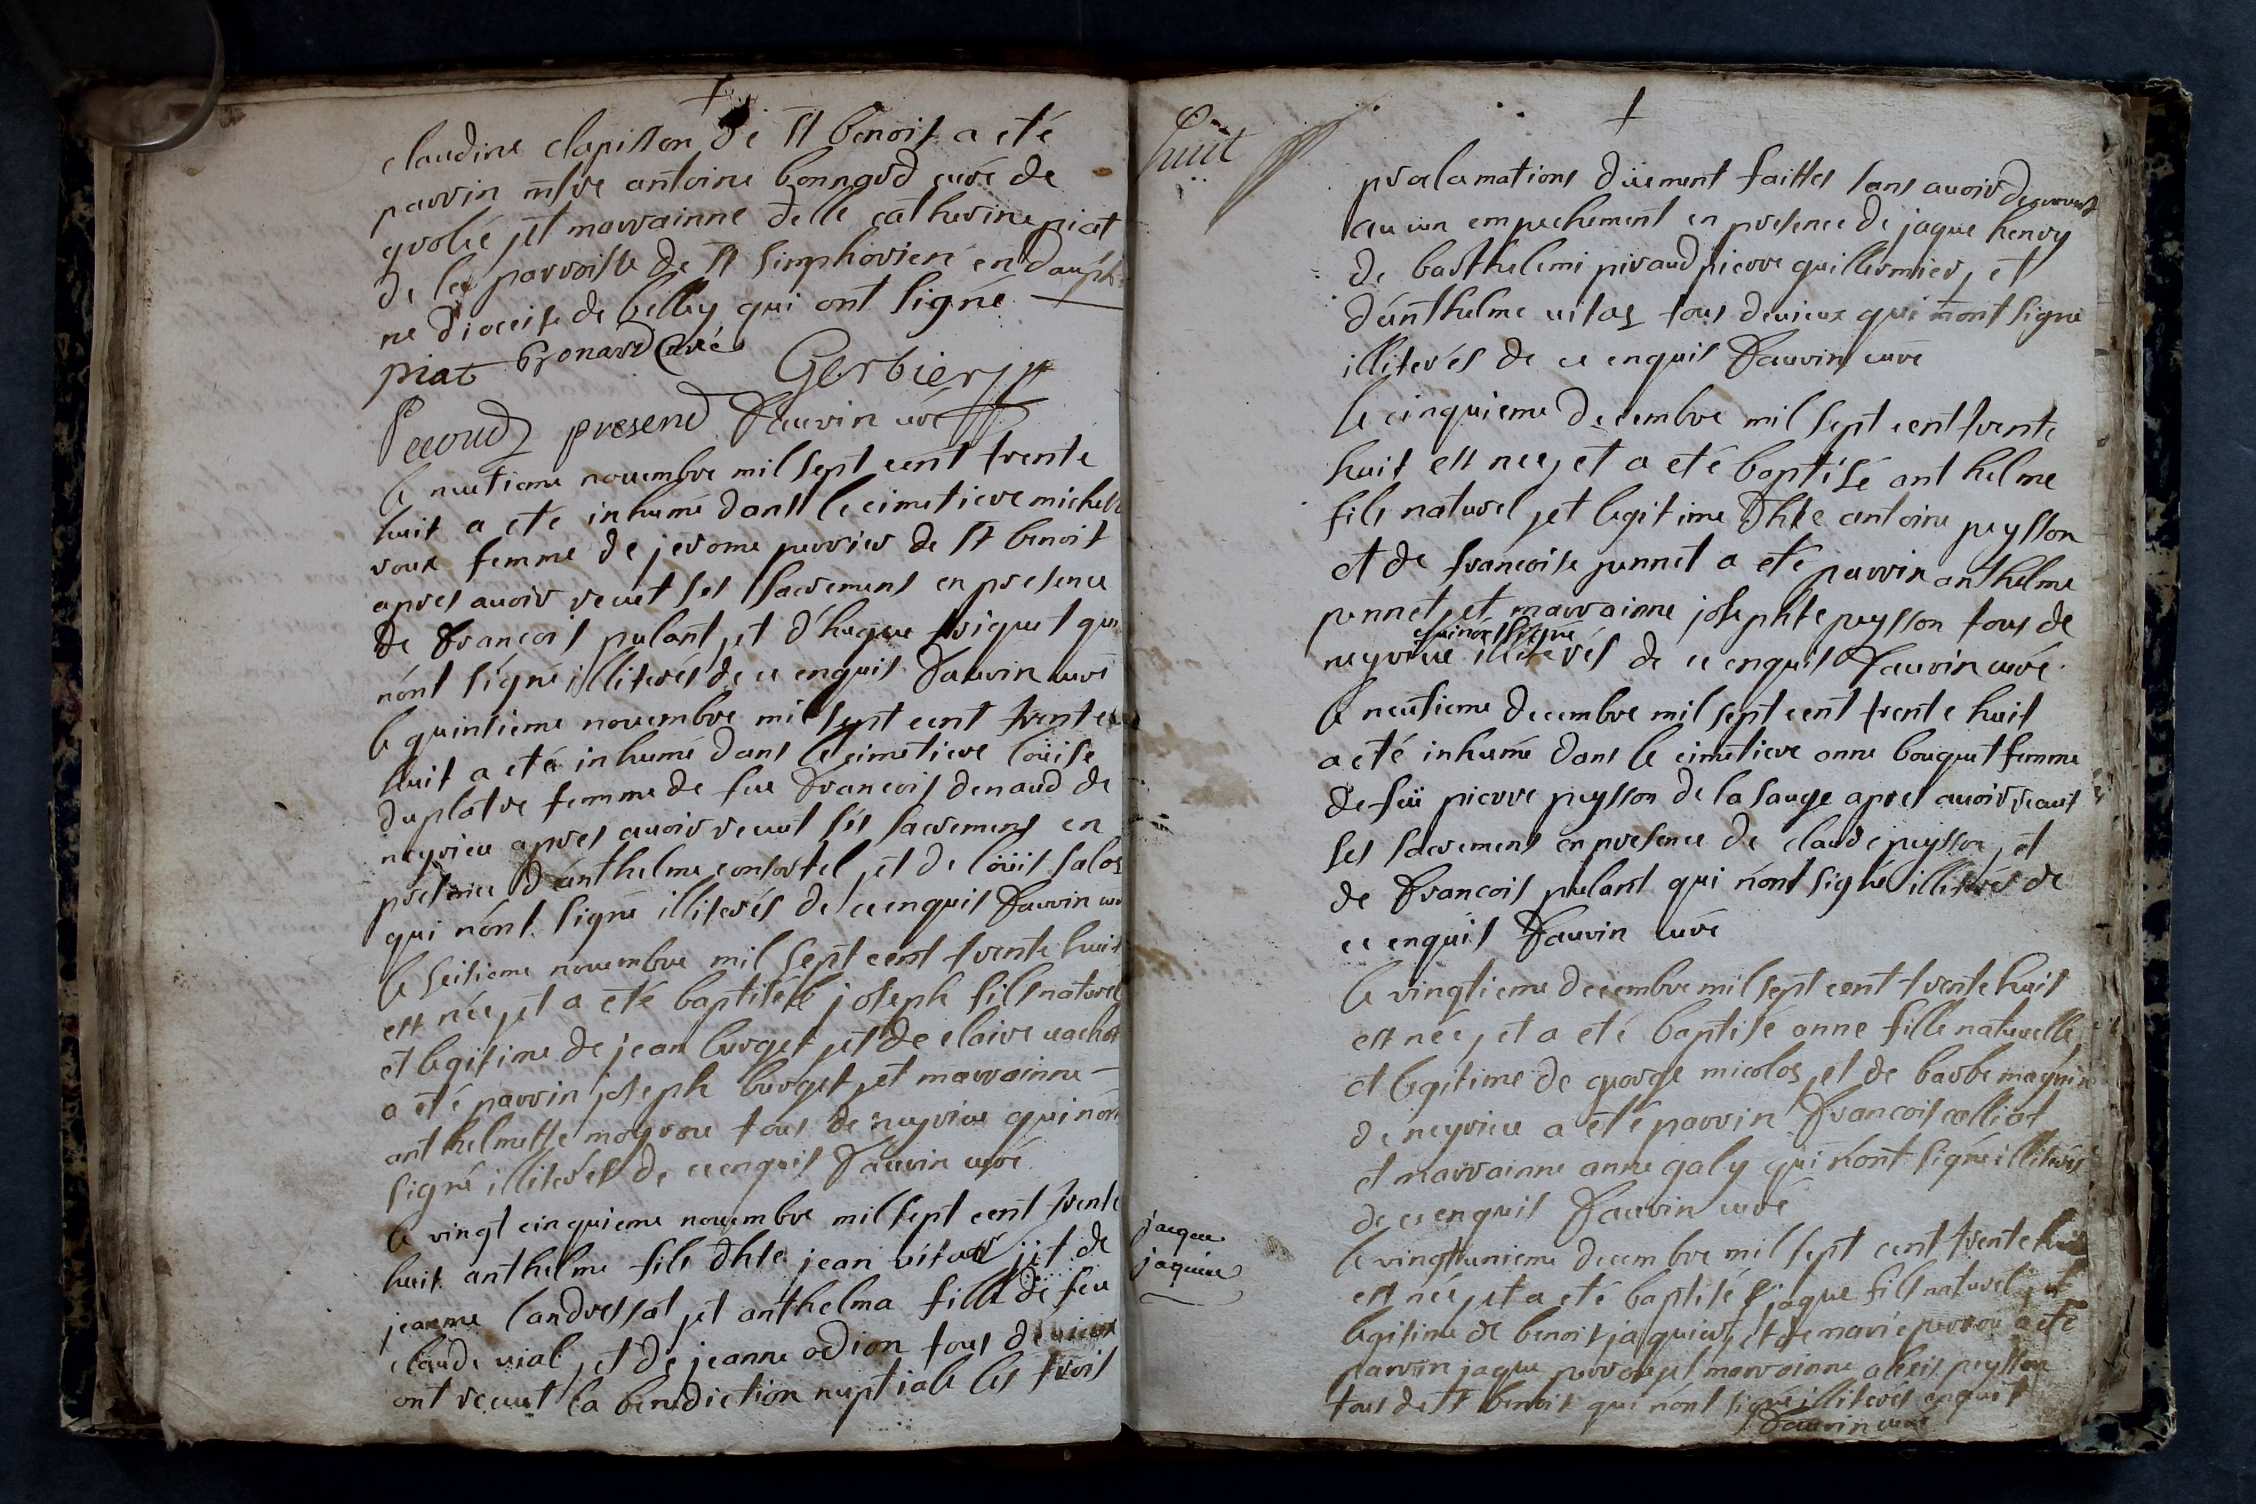 claudine clapisson de st benoit a eté
parrin mtre antoine bonnard curé de
grolée et marrainne delle catherine piat
de la parroisse de st simphorien en dauphi
né dioceise de belley qui ont signé
piat bonard curé
Gerbier
present Dauvin curé
le neufieme novembre mil sept cent trente
huit a eté inhumé dans le cimetiere michelle
roux femme de jerome perrier de st benoit
apres avoir recut ses sacremens en presence
de francois pulant, et d'hugue triquet qui
n'ont signé illiterés de ce enquis Dauvin curé
le quinsieme novembre mil sept cent trente
huit a eté inhumé dans le cimetiere loüise
duplatre femme de feu francois denaud de
neyrieu apres avoir recut ses sacremens en
presence d'anthelme consortel, et de loüis salos
qui n'ont signé illiterés de ce enquis Dauvin curé
le seitieme novembre mil sept cent trente huit
est née, et a eté baptisé joseph fils naturel
et legitime de jean burget, et de claire
a eté parrin joseph burget, et marrainne
anthelmette moyrou tous de neyrieu qui n'ont
signé illiterés de ce enquis Dauvin curé
le vingt cinquieme novembre mil sept cent trente
huit anthelme fils dhte jean vitas, et de
jeanne landressat, et anthelma fille de feu
claude vial, et de jeanne odion tous de vieux
ont recut la benediction nuptiale les trois
huit
proclamations düement faittes sans avoir decouvert
aucun empechement en presence de jaque henry
de barthelemi piraud pierre guillermier, et
d'anthelme vitas tous de vieux qui n'ont signé
illiterés de ce enquis Dauvin curé
le cinquieme decembre mil sept cent trente
huit est née, et a eté baptisé anthelme
fils naturel, et legitime dhte antoine peysson
et de francoise pennet a eté parrin anthelme
pennet, et marrainne josephte peysson tous de
qui n'ont signé
neyrieu illiterés de ce enquis Dauvin curé
le neufieme decembre mil sept cent trente huit
a eté inhumé dans le cimetiere anne bouquet femme
de feü pierre peysson de la sauge apres avoir recut
ses sacremens en presence de claude peysson, et
de francois pulant qui n'ont signé illiterés de
ce enquis Dauvin curé
le vingtieme decembre mil sept cent trente huit
est née, et a eté baptisé anne fille naturelle,
et legitime de george micolos, et de barbe magnin
de neyrieu a eté parrin francois colliat
et marrainne anne galy qui n'ont signé illiterés
de ce enquis Dauvin curé
jaque
jaquier
le vingtunieme decembre mil sept cent trente huit
est née, et a eté baptisé jaque fils naturel, et
legitime de benoit jaquier, et de marie perrou a eté
parrin jaque perrou, et marrainne alexis peysson
tous de st benoit qui n'ont signé illiterés enquis
Dauvin curé